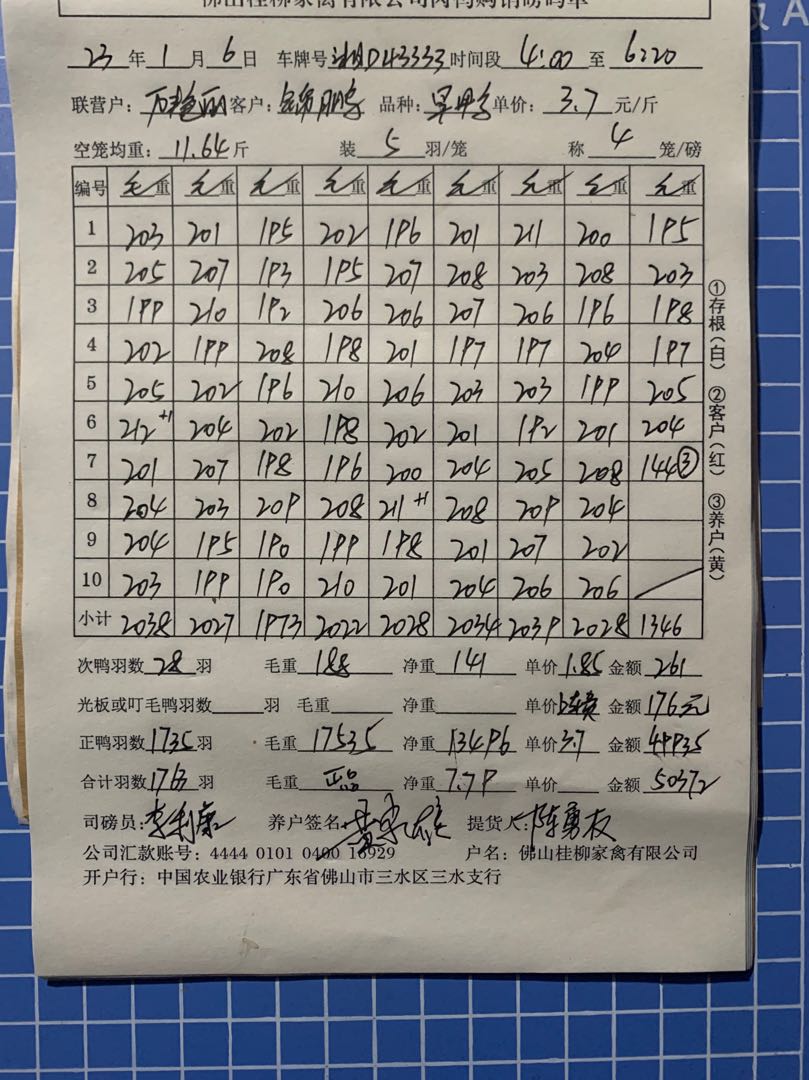 佛山桂柳家禽有限公司肉鸭购销磅码单
23年1月6日 车牌号湘D43333时间段4:00至6:20
联营户: 客户: 品种: 单价:3.7元/斤
空笼均重:11.64斤 装5羽/笼 称4笼/磅
编号 毛重 毛重 毛重 毛重 毛重 毛重 毛重 毛重 毛重
1 203 201 195 202 196 201 211 200 195
2 205 207 193 195 207 208 203 208 203
3 199 210 192 206 206 207 206 196 198
4 202 199 208 198 201 197 197 204 197
5 205 202 196 210 206 203 203 199 205
6 212+1 204 202 198 202 201 192 201 204
7 201 207 198 196 200 204 205 208 144③
8 204 203 209 208 211+1 208 209 204
9 204 195 190 199 198 201 207 202
10 203 199 190 210 201 204 206 206
小计 2038 2027 1973 2022 2028 2034 2039 2028 1346
次鸭羽数28羽 毛重188 净重141 单价1.85 金额261
光板或叮毛鸭羽数 羽 毛重 净重 单价 金额176元
正鸭羽数1735羽 毛重17535 净重13496 单价3.7 金额49935
合计羽数1763羽 毛重正品 净重7.79 单价 金额50372
司磅员:李利康 养户签名: 提货人:陈勇友
公司汇款账号:4444 0101 0400 16929 户名:佛山桂柳家禽有限公司
开户行:中国农业银行广东省佛山市三水区三水支行
①存根(白) ②客户(红) ③养户(黄)